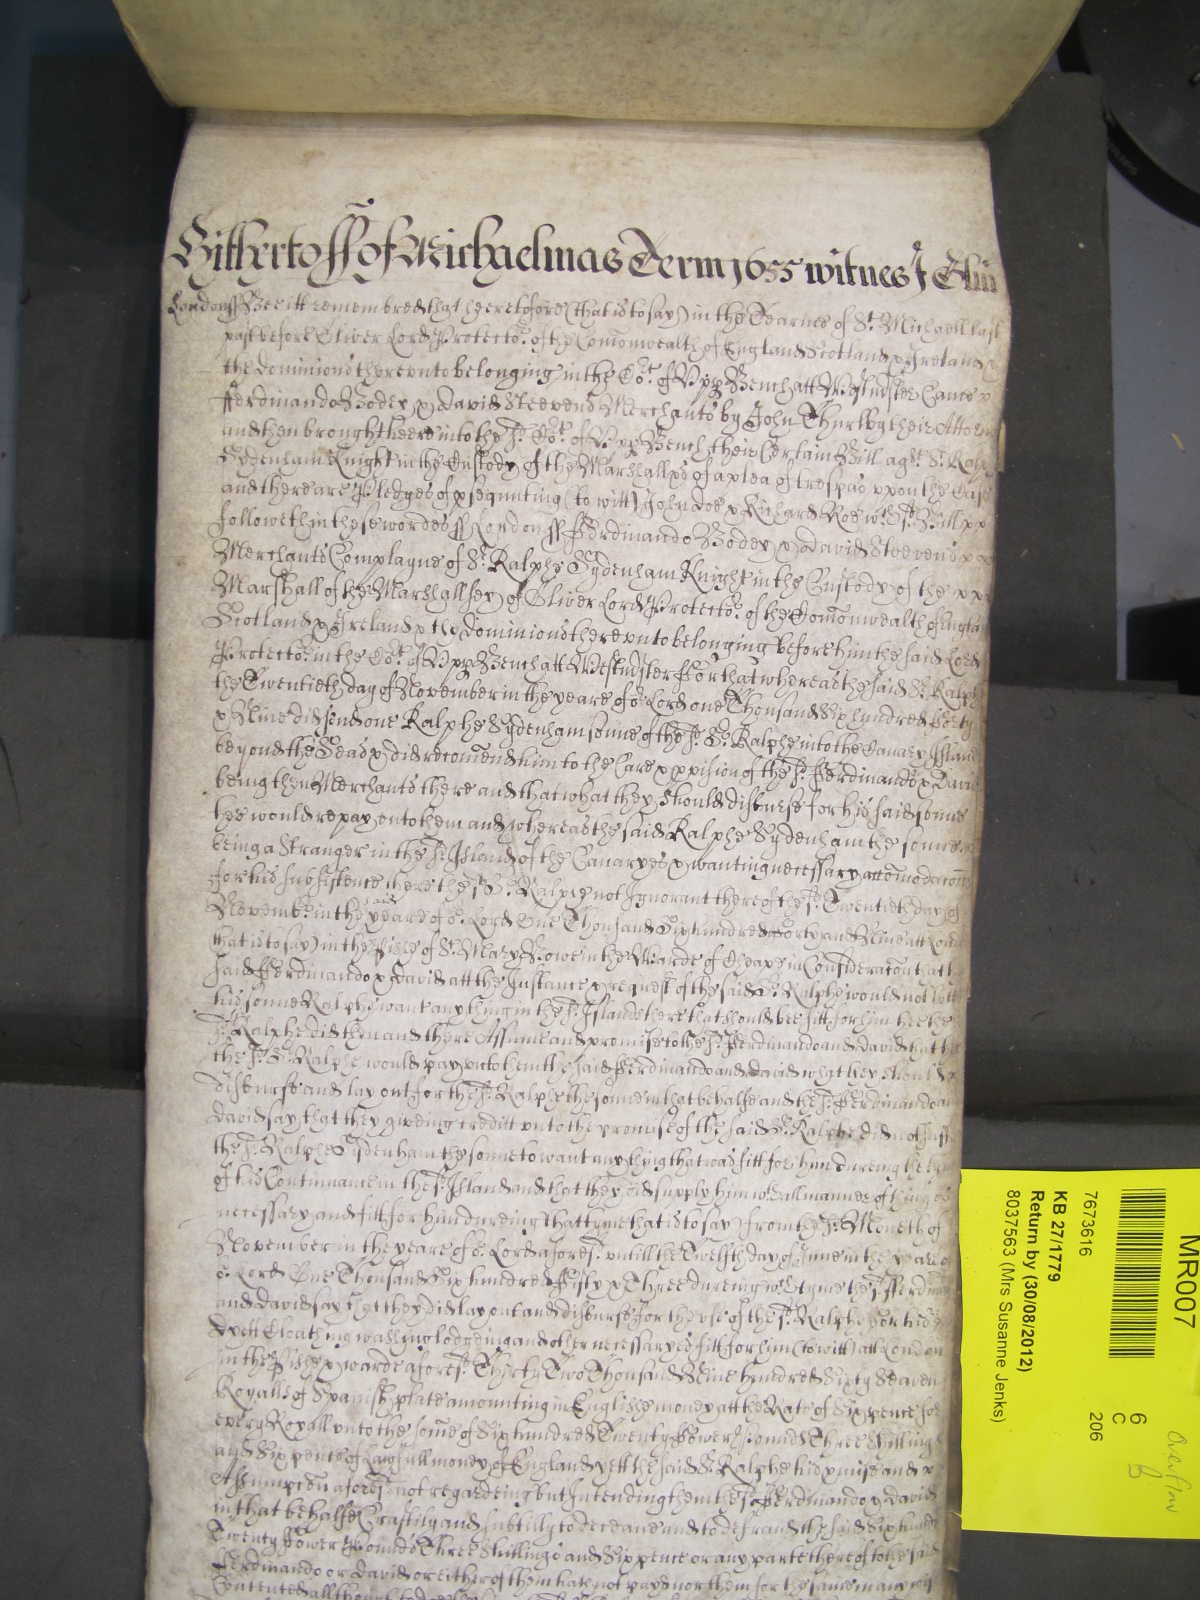 Hitherto ss of Michaelmas Term 1655 witnes J
London ss Bee itt remembred that heretofore (that is to say) in the Tearme of St. Michaell last
past before Oliver Lord Protector of the Comonwealth of England Scotland & Ireland &
the dominions thereunto belonging in the Cot. of Upp Bench att Westmster Came
Ferdinando Bodey & David Steevens Merchants by John Thurlby their Attorn
and then brought heere into the sd. Cot. of Upp Bench their Certain Bill agt. Sr. Ralph
Sydenham Knight in the Custody of the Marshall &c of a plea of trespas uppon the Case
and there are Pledges of psequuting (to witt) John Doe & Richard Roe wch. sd. Bill
followeth in these wordes ss London ss Ferdinando Bodey & David Steevens
Merchants Complayne of Sr. Ralphe Sydenham Knight in the Custody of the
Marshall of the Marshallsey of Oliver Lord Protector of the Comonwealth of England
Scotland & Ireland & the dominions thereunto belonging before him the said Lord
Protector in the Cot. of Upp Bench att Westmster For that whereas the said Sr. Ralph
the Twentieth day of November in the yeare of or. Lord one Thousand Six hundred Forty
& Nine did send one Ralphe Sydenham sonne of the sd. Sr. Ralphe into the Canary Island
beyond the Seas & did recomend him to the Care & pvision of the sd. Ferdinando & David
being then Merchants there and that what they should disburse for his said sonne
hee would repay unto them and whereas the said Ralphe Sydenham the sonne
being a Stranger in the sd. Islands of the Canaryes & wanting necessary accomodacons
for his subsistence there the sd. Sr. Ralphe not Ignorant thereof the sd. Twentieth day of
November in the said yeare of or. Lord One Thousand Six hundred Forty and Nine att London
that is to say) in the Pishe of St. Mary Bowe in the Warde of Cheape in Consideracon that the
said Ferdinando & David att the Instance & request of the said Sr. Ralphe would not lett
his sonne Ralphe want any thing in the sd. Islands there that should bee fitt for him hee the
sd. Ralphe did then and there Assume and promise to the sd. Ferdinando and David that hee
the sd. Sr. Ralphe would pay unto them the said Ferdinando and David what they should
disburse and lay out for the sd. Ralphe the sonne in that behalfe and the sd. Ferdinando and
David say that they giveing creditt unto the promise of the said Sr. Ralphe did not suffer
the sd. Ralphe Sydenham the sonne to want any thing that was fitt for him dureing the tyme
of his Continuance in the sd. Island and that they did supply him wth. all manner of things
necessary and fitt for him dureing that tyme that is to say) from the sd. Moneth of
November in the yeare of or. Lord aforesd. untill the Twelfth day of June in the yeare of
or. Lord One Thousand Six hundred Fifty & Three dureing wch. tyme the sd. Ferdinando
and David say that they did lay out and disburse for the use of the sd. Ralphe for his
dyett Cloathing washing lodgeing and other necessaryes fitt for him (to witt) att London
in the Pishe & warde aforesd. Thirty Two Thousand Nine hundred Sixty Seaven
Royalls of Spanish plate amounting in English money att the Rate of Sixpence for
every Royall unto the some of Six hundred Twenty Fower Pounds Three Shillings
and Six pence of Lawfull money of England yett the said Sr. Ralphe his pmise and
Assumpcon aforesd. not regardeing but Intending them the sd. Ferdinando & David
in that behalfe Craftily and subtilly to deceave and to defraud the said Six hundred
Twenty Fower Pounds Three Shillings and Six pence or any parte thereof to the said
Ferdinando or David or either of them hath not payd nor them for the same in any wise
Contented
MR007
6
C
206
Overflow
7673616
KB 27/1779
Return by (30/08/2012)
8037563 (Mrs Susanne Jenks)